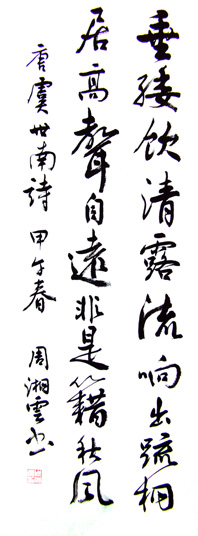 垂緌饮清露流响出疏桐
居高聲自遠非是籍秋风
唐虞世南詩 甲午春 周湘雲书